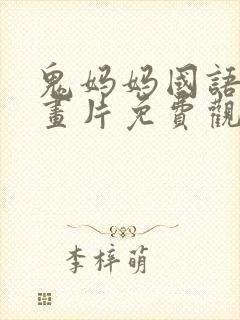 鬼妈妈國語
畫片免費觀
李梓萌